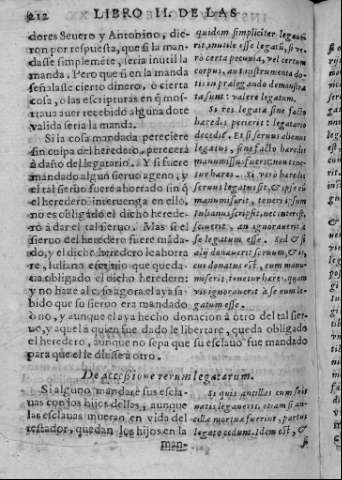 212 LIBRO II. DE LAS
dores Severo y Antonino, die-
ron por respuesta, que si la man-
da se simplemẽte, seria inutil la
manda. Pero que si en la manda
señalasse cierto dinero, o cierta
cosa, o las escripturas en q̃ mos-
traua auer recebido alguna dote
valida seria la manda.
Si la cosa mandada pereciere
sin culpa del heredero, perecera
à daño del legatario. Y si fuere
mandado algun sieruo ageno, y
el tal sieruo fuere ahorrado sin q̃
el heredero interuenga en ello,
no es obligado el dicho herede-
ro à dar el tal sieruo. Mas si el
sieruo del heredero fuere mãda-
do, y el dicho heredero le ahorra
re, Iuliano escriuio que queda-
ua obligado el dicho heredero:
y no haze al c. so agora el aya sa-
bido que su sieruo era mandado
o no, y aunque el aya hecho donacion à otro del tal sier-
uo, y aquel à quien fue dado le libertare, queda obligado
el heredero, aunque no sepa que su esclauo fue mandado
para que el le diesse à otro.
quidem simpliciter legaue-
rit, inutile esse legatũ, si ve-
rò certa pecunia, vel certum
corpus, aut instrumenta do-
tis in pralegando demonstra
ta sunt: valere legatum.
Si res legata sine facto
haredis perierit: legatario
decedit. Et si seruus alienus
legatus, sine facto haredis
manumissus fuerit, non tene-
tur hares. Si verò haredis
seruus legatus sit, & ipse eũ
manumiserit, teneri ipsum
Iulianus scripsit, nec interest,
scierit, an ignorauerit à
se legatum esse. Sed & si
alij donauerit seruum, & is,
cui donatus est, eum manu-
miserit, tenetur hares, quam
vis ignorauerit à se eum le-
gatum esse.
De accessione rerum legatarum.
Si alguno mandare sus escla-
uas con los hijos dellas, aunque
las esclauas mueran en vida del
testador, quedan los hijos en la
man-
Si quis ancillas cum suis
natis legauerit, etiam si an-
cillæ mortuæ fuerint, partus
legato cedunt. Idem est, &
si